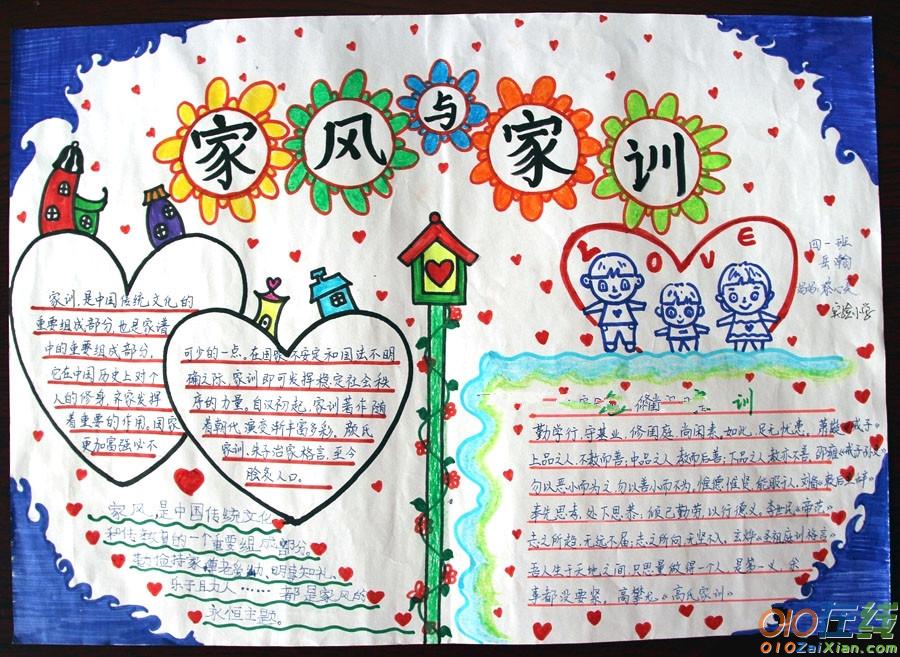 家风与家训
LOVE
四一班
岳瀚
实验小学
家训，是中国传统文化的
重要组成部分，也是家谱
中的重要组成部分，
它在中国历史上对个
人的修身、齐家发挥
着重要的作用。国家
更加富强必不
可少的一点。在国家不安定和国法不明
确之际，家训即可发挥稳定社会秩
序的力量。自汉初起，家训著作随
着朝代演变渐丰富多彩。颜氏
家训、朱子治家格言，至今
脍炙人口。
家风，是中国传统文化
和传统美的一个重要组成部分。
勤俭持家 尊老爱幼 明事知礼、
乐于助人……都是家风的
永恒主题。
训
勤学行，守基业，修闺庭，尚闲素。如此，足无忧患。萧嶷《戒子》
上品之人，不教而善；中品之人，教而后善；下品之人，教亦不善。邵雍《戒子孙》
勿以恶小而为之，勿以善小而不为。惟德惟贤，能服认。刘备《敕后主辞》
奉先思孝，处下思恭；倾己勤劳，以行德义。李世民《帝范》
志之所趋，无远不届；志之所向，无坚不入。玄烨《圣祖庭训格言》
吾人生于天地之间，只思量做得一个人，是第一义，余
事都没要紧。高攀龙《高氏家训》
010在线
010ZaiXian.com